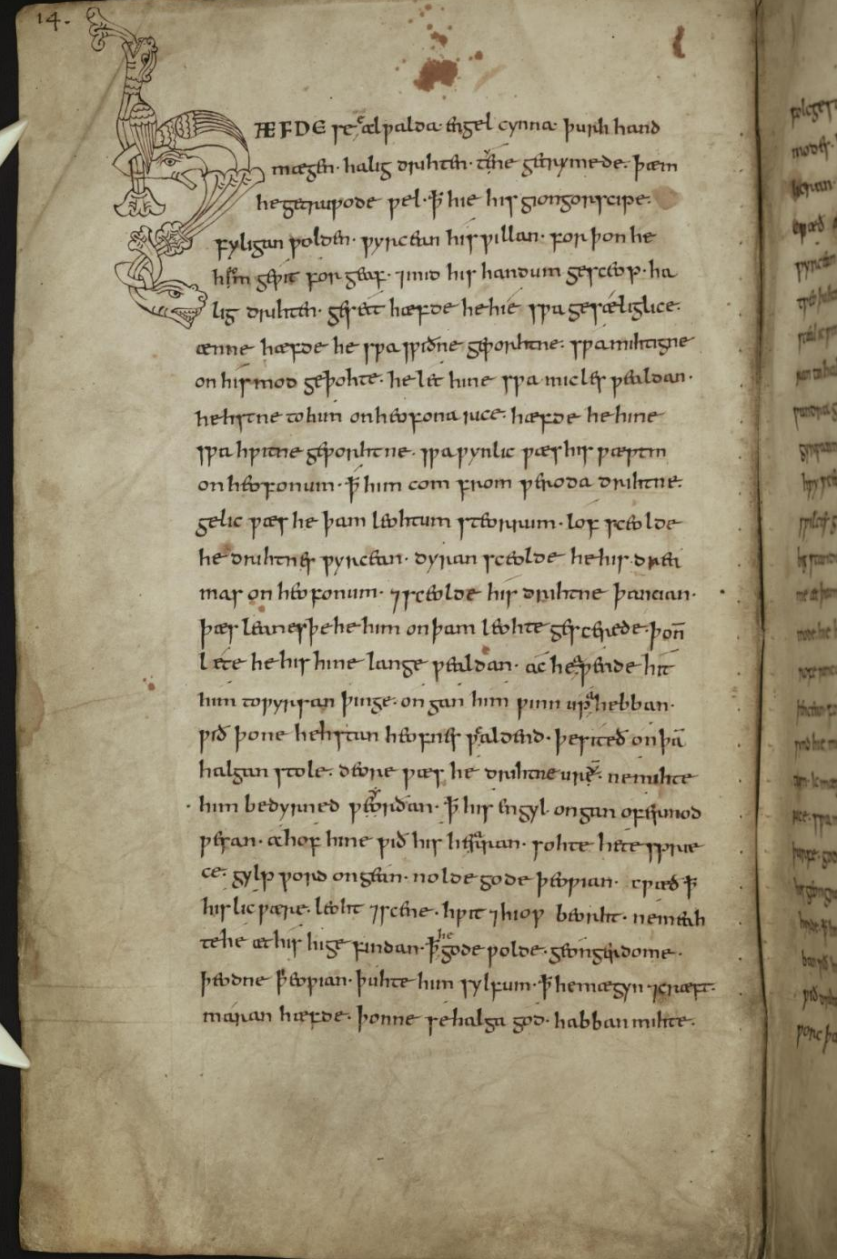 14.
HÆFDE se ealwalda. engel cynna. þurh hand
mægen. halig drihten. tene getrymede. þæm
he getruwode wel. ꝥ hie his giongorscipe.
fyligan wolden. wyrcean his willan. forþon he
him gewit forgeaf. ⁊mid his handum gesceop. ha
lig drihten. gesett hæfde he hie swa gesæliglice.
ænne hæfde he swa swiðne geworhtne. swa mihtigne
on his mod geþohte. he let hine swa micles wealdan.
hehstne to him on heofona rice. hæfde he hine
swa hwitne geworhtne. swa wynlic wæs his wæstm
on heofonum. ꝥ him com from weroda drihtne.
gelic wæs he þam leohtum steorrum. lof sceolde
he drihtnes wyrcean. dyran sceolde he his dreā
mas on heofonum. ⁊ sceolde his drihtne þancian.
þæs leanes þe he him on þam leohte gescerede. þoñ
læte he his hine lange wealdan. ac he awende hit
him to wyrsan þinge. ongan him winn up ahebban.
wið þone hehstan heofnes wealdend. þe siteð on þā
halgan stole. deore wæs he drihtne ure. ne mihte
him bedyrned weorðan. ꝥ his engyl ongan ofermod
wesan. ahof hine wið his hearran. sohte hetespræ
ce. gylp word ongean. nolde gode þeowian. cwæð ꝥ
his lic wære. leoht ⁊ scene. hwit ⁊ hiow beorht. ne meah
te he æt his hige findan. ꝥ he gode wolde. geongerdome.
þeodne þeowian. þuhte him sylfum. ꝥ he mægyn ⁊ cræft.
maran hæfde. þonne se halga god. habban mihte.